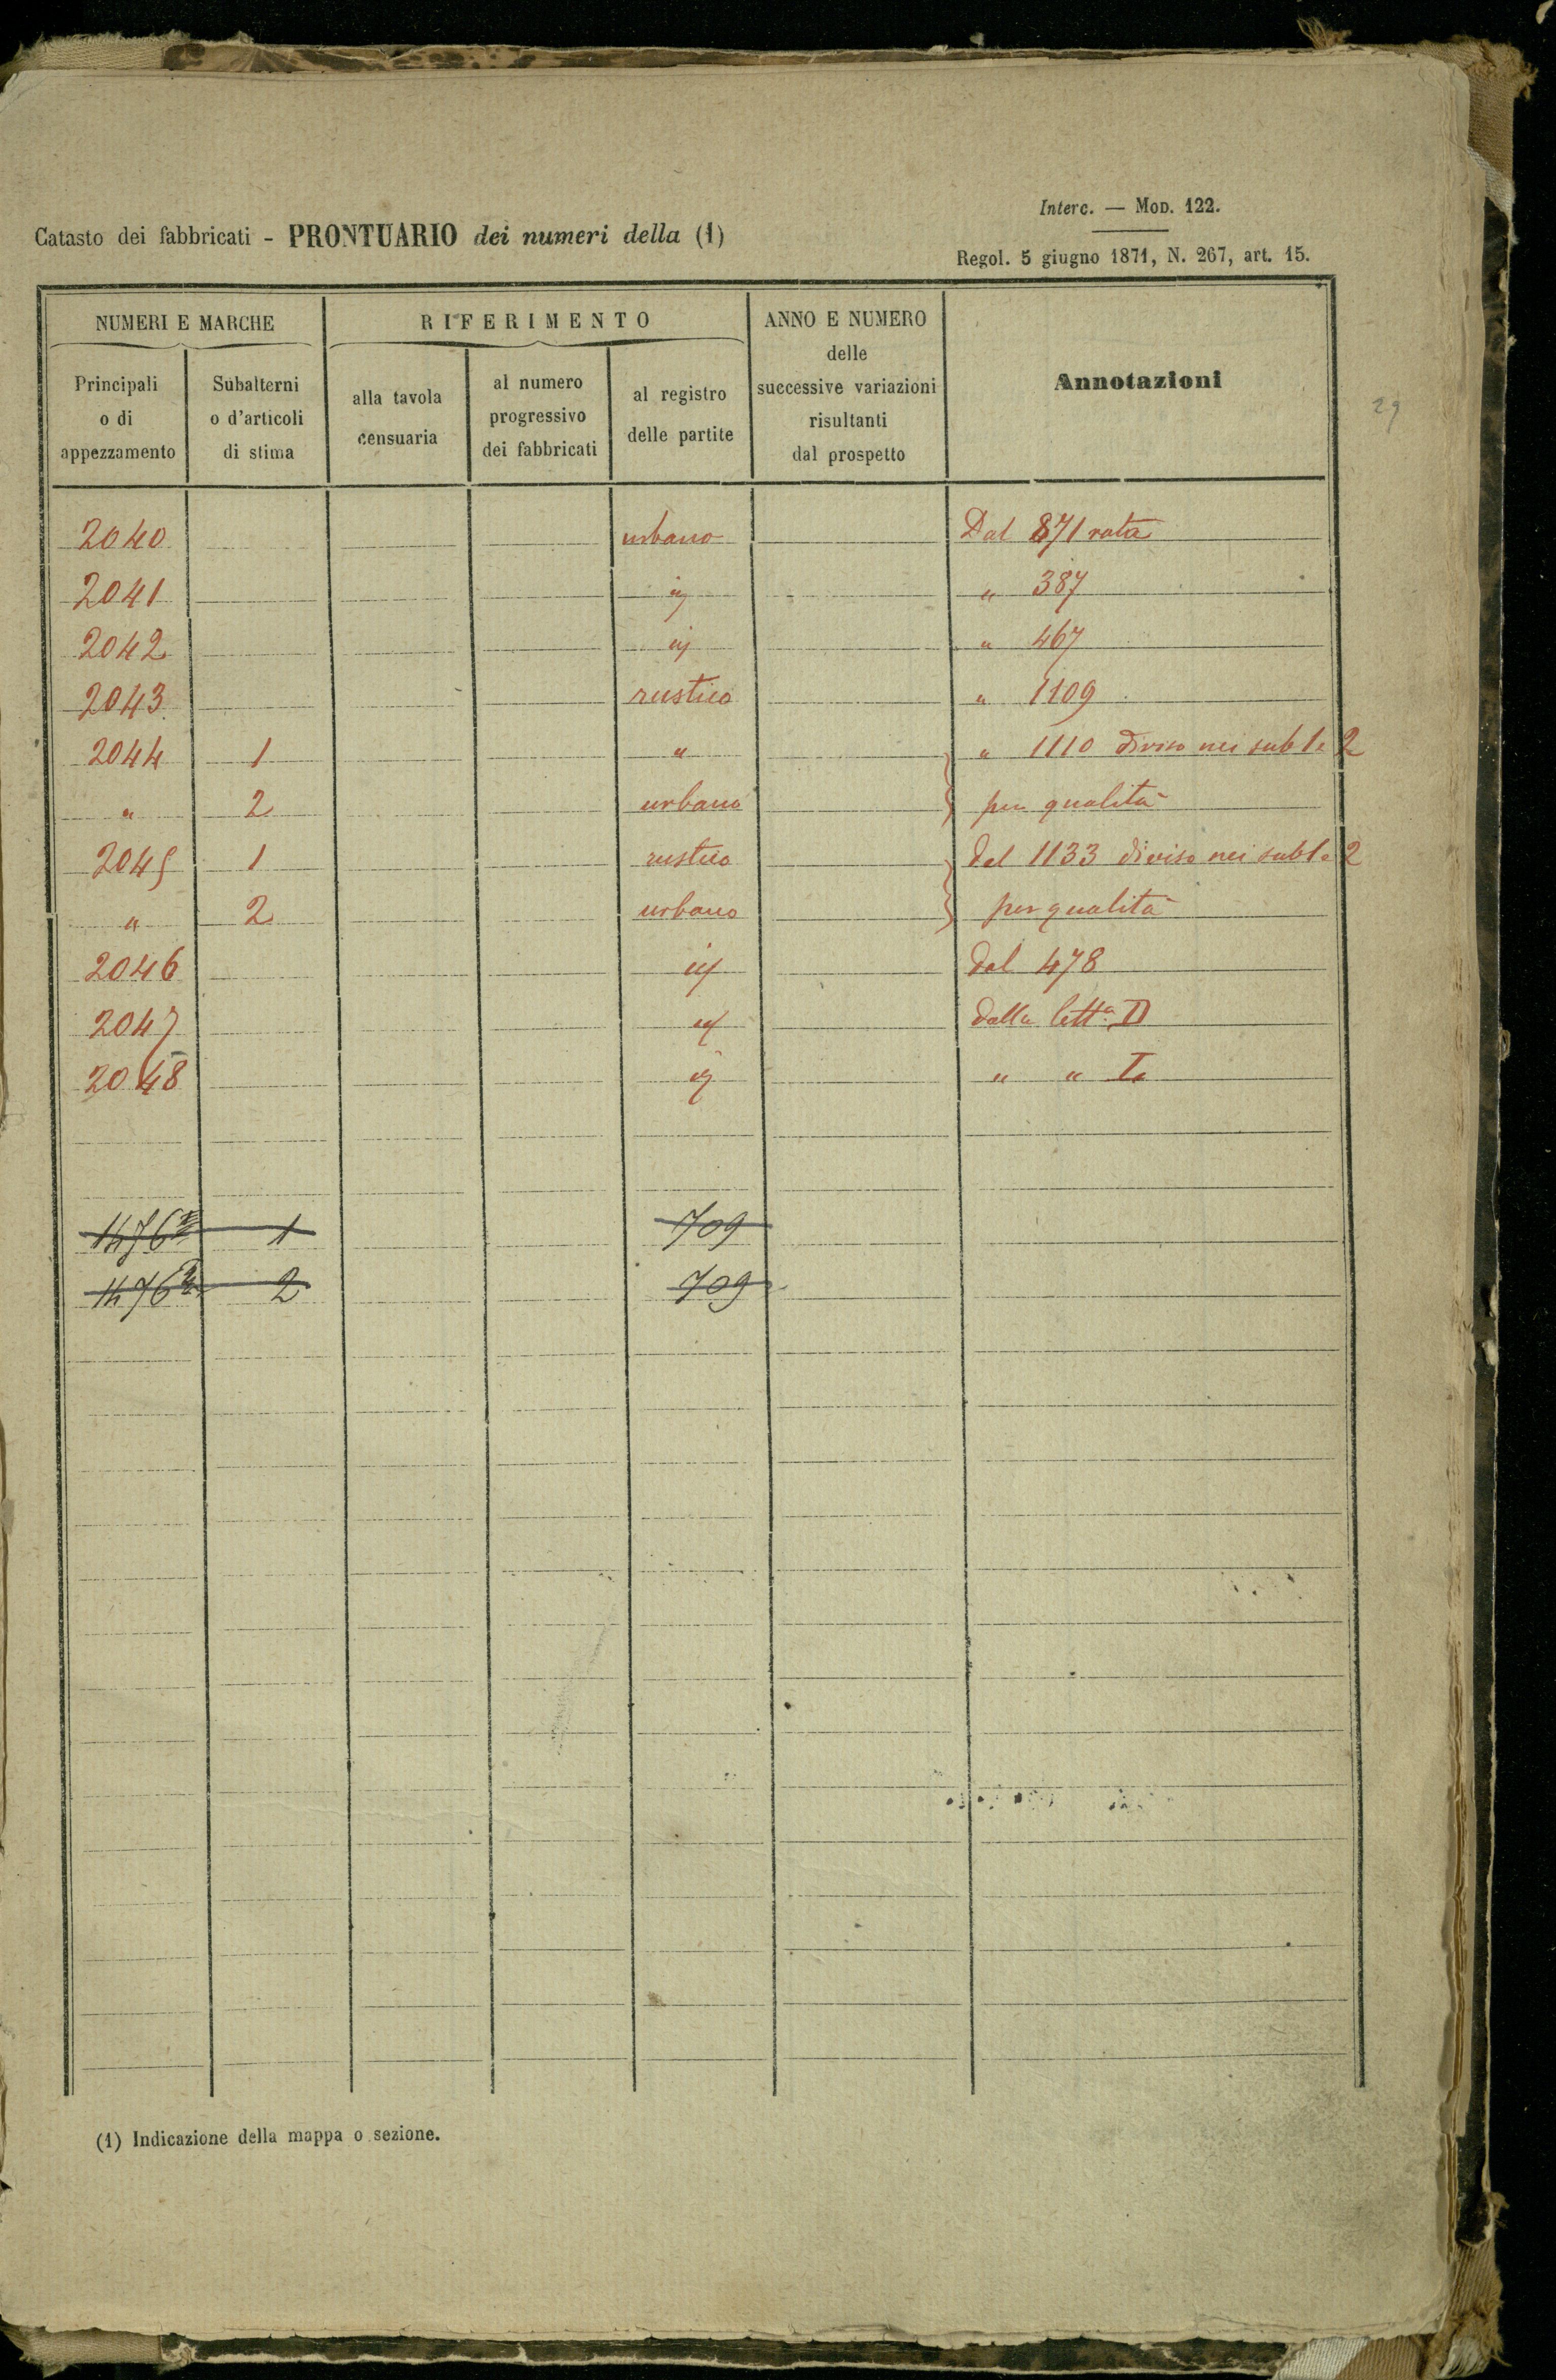 Interc. — Mod. 122.
Catasto dei fabbricati - PRONTUARIO dei numeri della (1)
Regol. 5 giugno 1871, N. 267, art. 15.
NUMERI E MARCHE
RIFERIMENTO
ANNO E NUMERO
delle
successive variazioni
risultanti
dal prospetto
Annotazioni
Principali
o di
appezzamento
Subalterni
o d'articoli
di stima
alla tavola
censuaria
al numero
progressivo
dei fabbricati
al registro
delle partite
29
2040 urbano Dal 871 rata
2041 " 387
2042 " 467
2043 rustico " 1109
2044 1 " " 1110 diviso nei sub 1 e 2
" 2 urbano per qualità
2045 1 rustico dal 1133 diviso nei sub 1 e 2
" 2 urbano per qualità
2046 dal 478
2047 dalla letta D
2048 " "
1476 1 709
1476 2 709
(1) Indicazione della mappa o sezione.